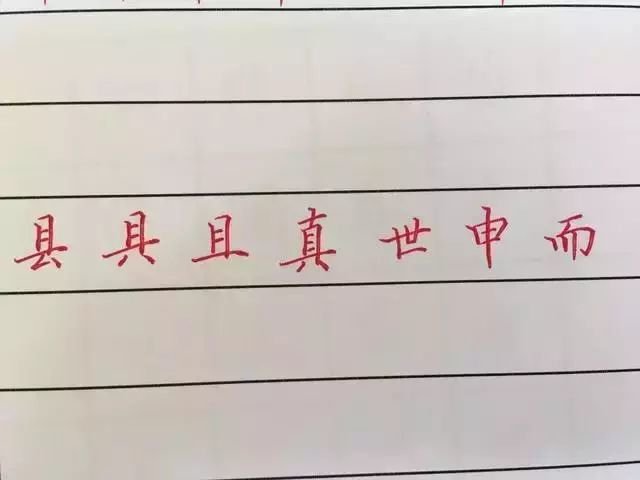 县具且真世申而